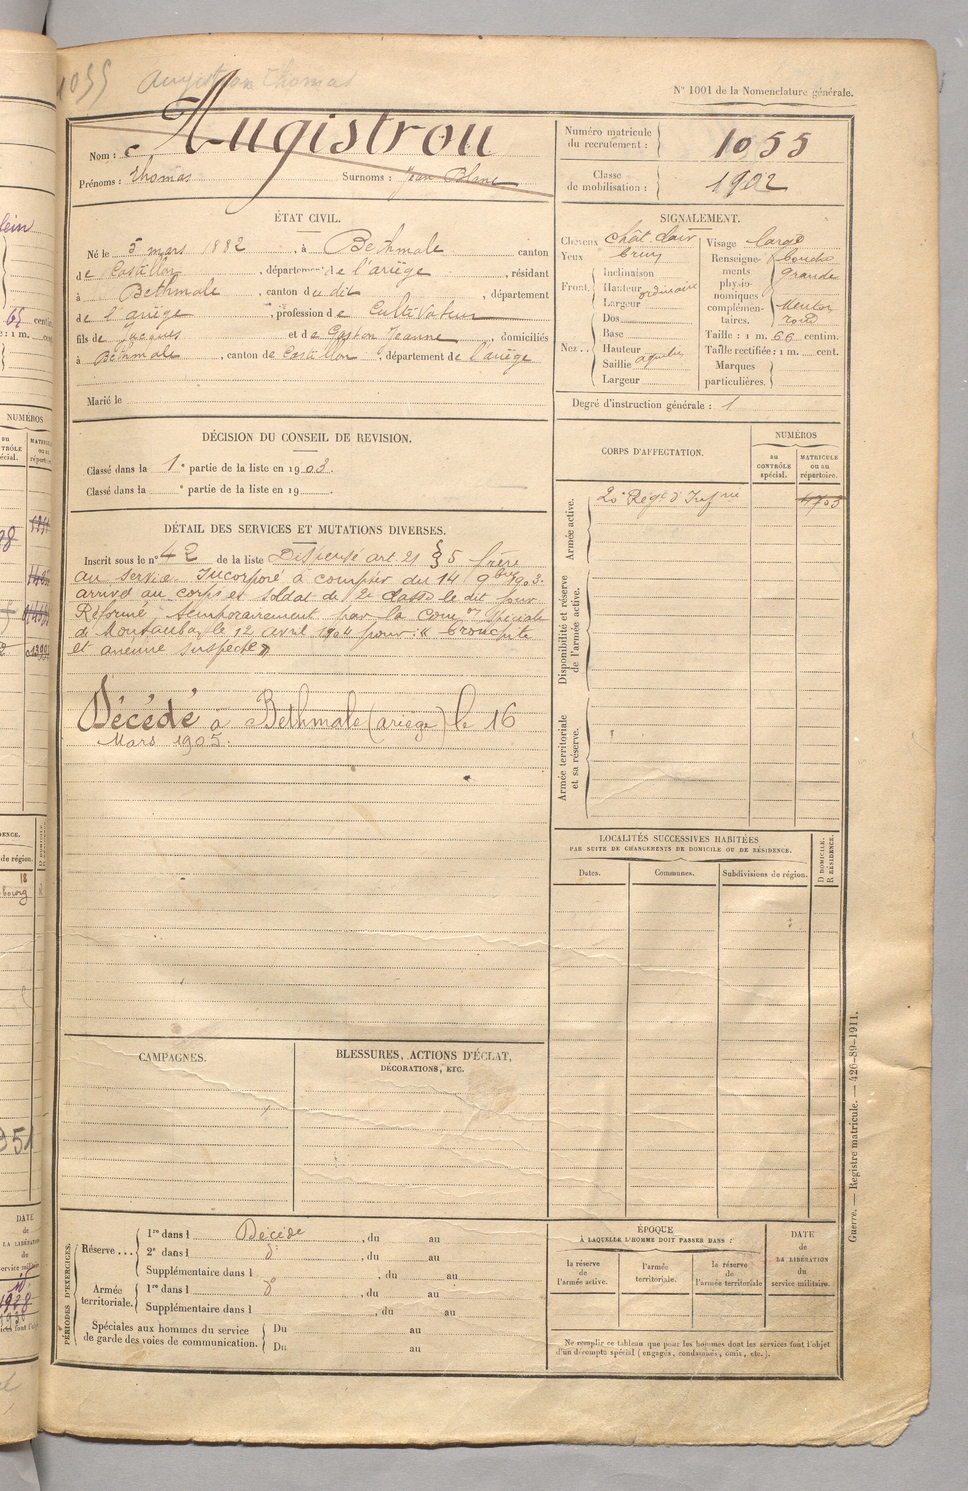 1055 Augistrou Thomas
N° 1001 de la Nomenclature générale.
Nom : Augistrou
Prénoms : Thomas Surnoms : Jean Blanc
Numéro matricule du recrutement : 1055
Classe de mobilisation : 1902
ÉTAT CIVIL.
Né le 5 mars 1882, à Bethmale canton
de Castillon, département de l'ariège, résidant
à Bethmale, canton du dit, département
de l'ariège, profession de Cultivateur
fils de Jacques et de Gaston Jeanne, domiciliés
à Bethmale, canton de Castillon, département de l'ariège
Marié le
SIGNALEMENT.
Cheveux chât clair
Yeux
Front. Inclinaison
Hauteur ordinaire
Largeur
Nez.. Dos
Base
Hauteur
Saillie
Largeur
Visage large
Renseignements physionomiques complémentaires. bouche
grande
Menton
rond
Taille : 1 m. 66 centim.
Taille rectifiée : 1 m. cent.
Marques particulières.
Degré d'instruction générale : 1
DÉCISION DU CONSEIL DE REVISION.
Classé dans la 1e partie de la liste en 1903.
Classé dans la e partie de la liste en 19
DÉTAIL DES SERVICES ET MUTATIONS DIVERSES.
Inscrit sous le n° 42 de la liste Dispensé art. 21 § 5 frère
au service. Incorporé à compter du 14 9bre 1903.
arrivé au corps et soldat de 2e classe le dit jour
Réformé temporairement par la Comon spéciale
de Montauban le 12 avril 1904 pour : « bronchite
et anémie suspecte »
Décédé à Bethmale (ariège) le 16
Mars 1905.
CORPS D'AFFECTATION.
NUMÉROS
au CONTRÔLE spécial.
MATRICULE ou au répertoire.
Armée active.
20e Régt d'Infrie
4703
Disponibilité et réserve de l'armée active.
Armée territoriale et sa réserve.
LOCALITÉS SUCCESSIVES HABITÉES
PAR SUITE DE CHANGEMENTS DE DOMICILE OU DE RÉSIDENCE.
Dates.
Communes.
Subdivisions de région.
D. DOMICILE.
R. RÉSIDENCE.
CAMPAGNES.
BLESSURES, ACTIONS D'ÉCLAT,
DÉCORATIONS, ETC.
PÉRIODES D'EXERCICES.
Réserve...
1re dans l Décédé, du au
2e dans l d°, du au
Supplémentaire dans l, du au
Armée territoriale.
1re dans l d°, du au
Supplémentaire dans l, du au
Spéciales aux hommes du service
de garde des voies de communication.
Du au
Du au
ÉPOQUE
À LAQUELLE L'HOMME DOIT PASSER DANS :
la réserve de l'armée active.
l'armée territoriale.
la réserve de l'armée territoriale
DATE de LA LIBÉRATION du service militaire.
Ne remplir ce tableau que pour les hommes dont les services font l'objet
d'un décompte spécial (engagés, condamnés, omis, etc.).
Guerre. — Registre matricule. — 426-89-1911.